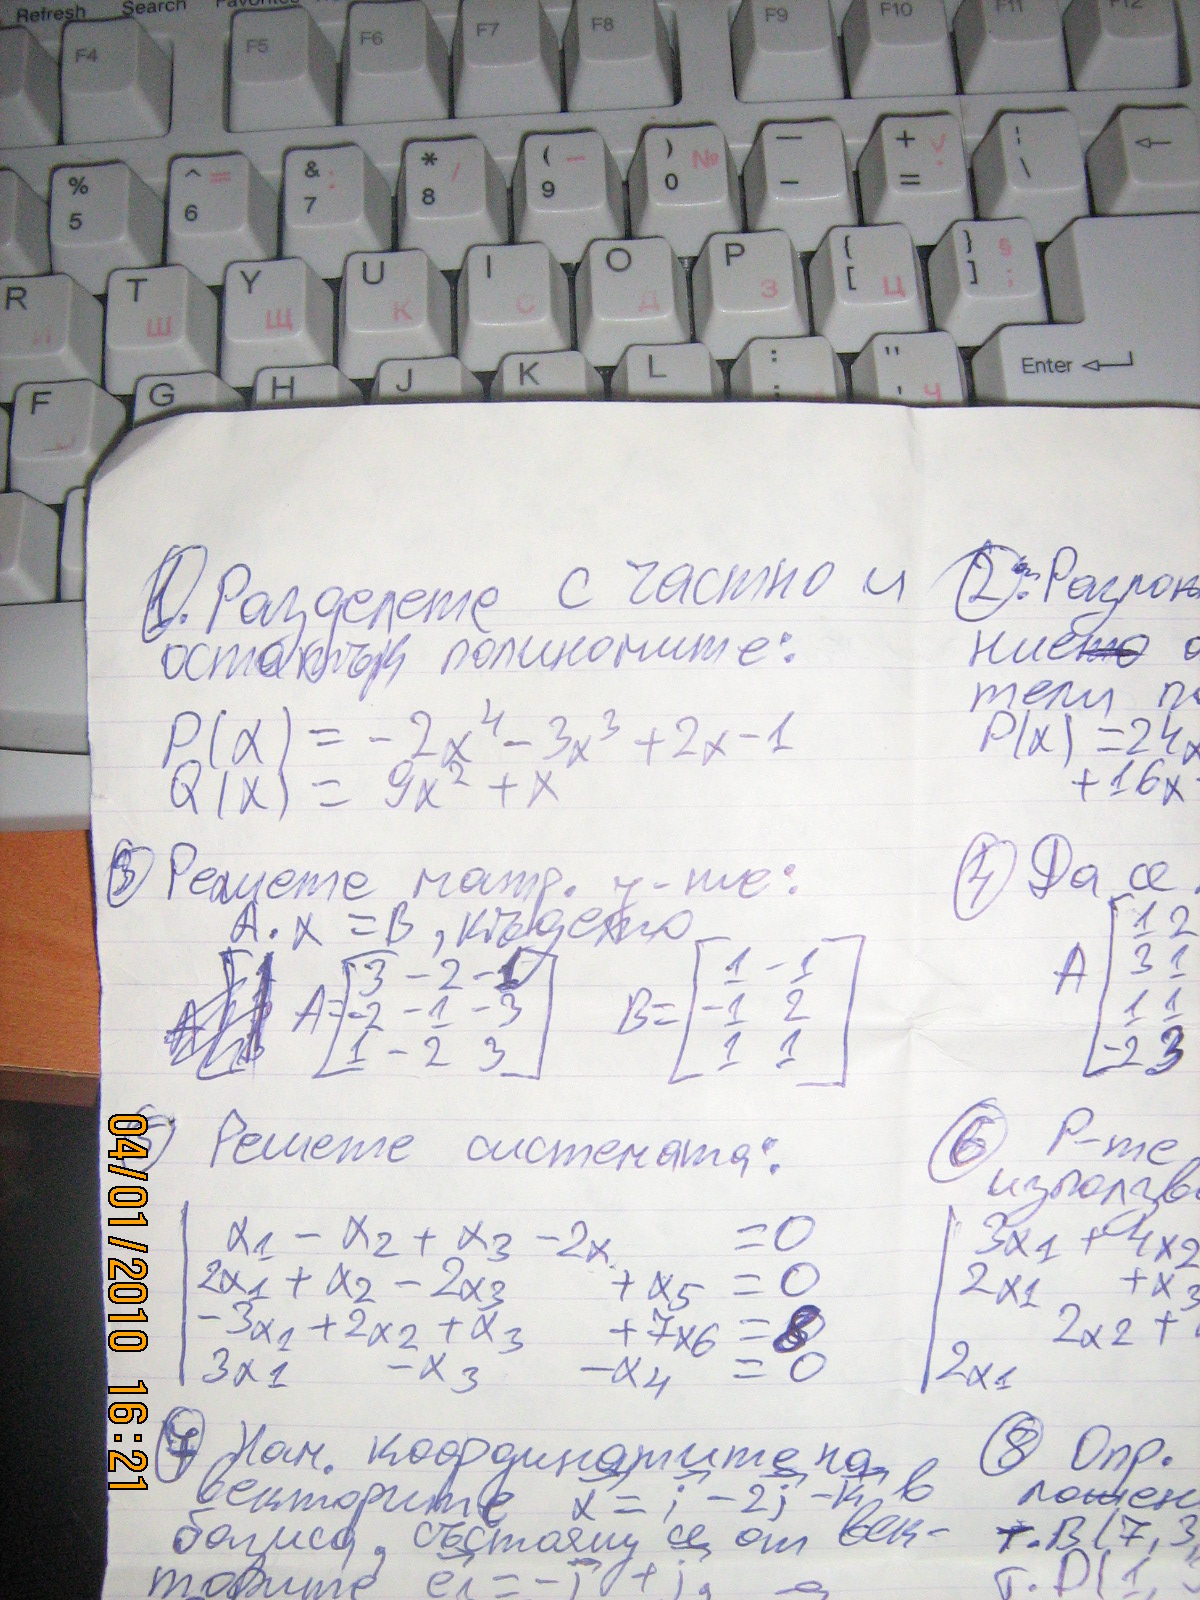 Refresh Search Favorites
F4 F5 F6 F7 F8 F9 F10 F11 F12
% 5 ^ 6 = & 7 : * 8 / ( 9 – ) 0 № — – + = V ¦ \ ←
R И T Ш Y Щ U К I С O Д P З { [ Ц } ] § ;
F G H J K L : ; " ' Ч Enter
1. Разделете с частно и
остатък полиномите:
P(x) = -2x⁴ - 3x³ + 2x - 1
Q(x) = 9x² + x
2. Разлож
ние
тели по
P(x) = 24x
+16x
3 Решете матр. у-те:
A.x = B, където
A= [3 -2 -1
-2 -1 -3
1 -2 3]
B= [1 -1
-1 2
1 1]
4 Да се
A [1 2
3 1
1 1
-2 3
5 Решете системата:
x1 - x2 + x3 - 2x = 0
2x1 + x2 - 2x3 + x5 = 0
-3x1 + 2x2 + x3 + 7x6 = 8
3x1 - x3 - x4 = 0
6 Р-те
използв
3x1 + 4x2
2x1 + x3
2x2 +
2x1
7 Нам. координатите на
векторите x = i - 2j - k в
базиса, състоящ се от век-
торите e1 = -i + j,
8 Опр.
т. B(7, 3,
т. D(1,
04/01/2010 16:21